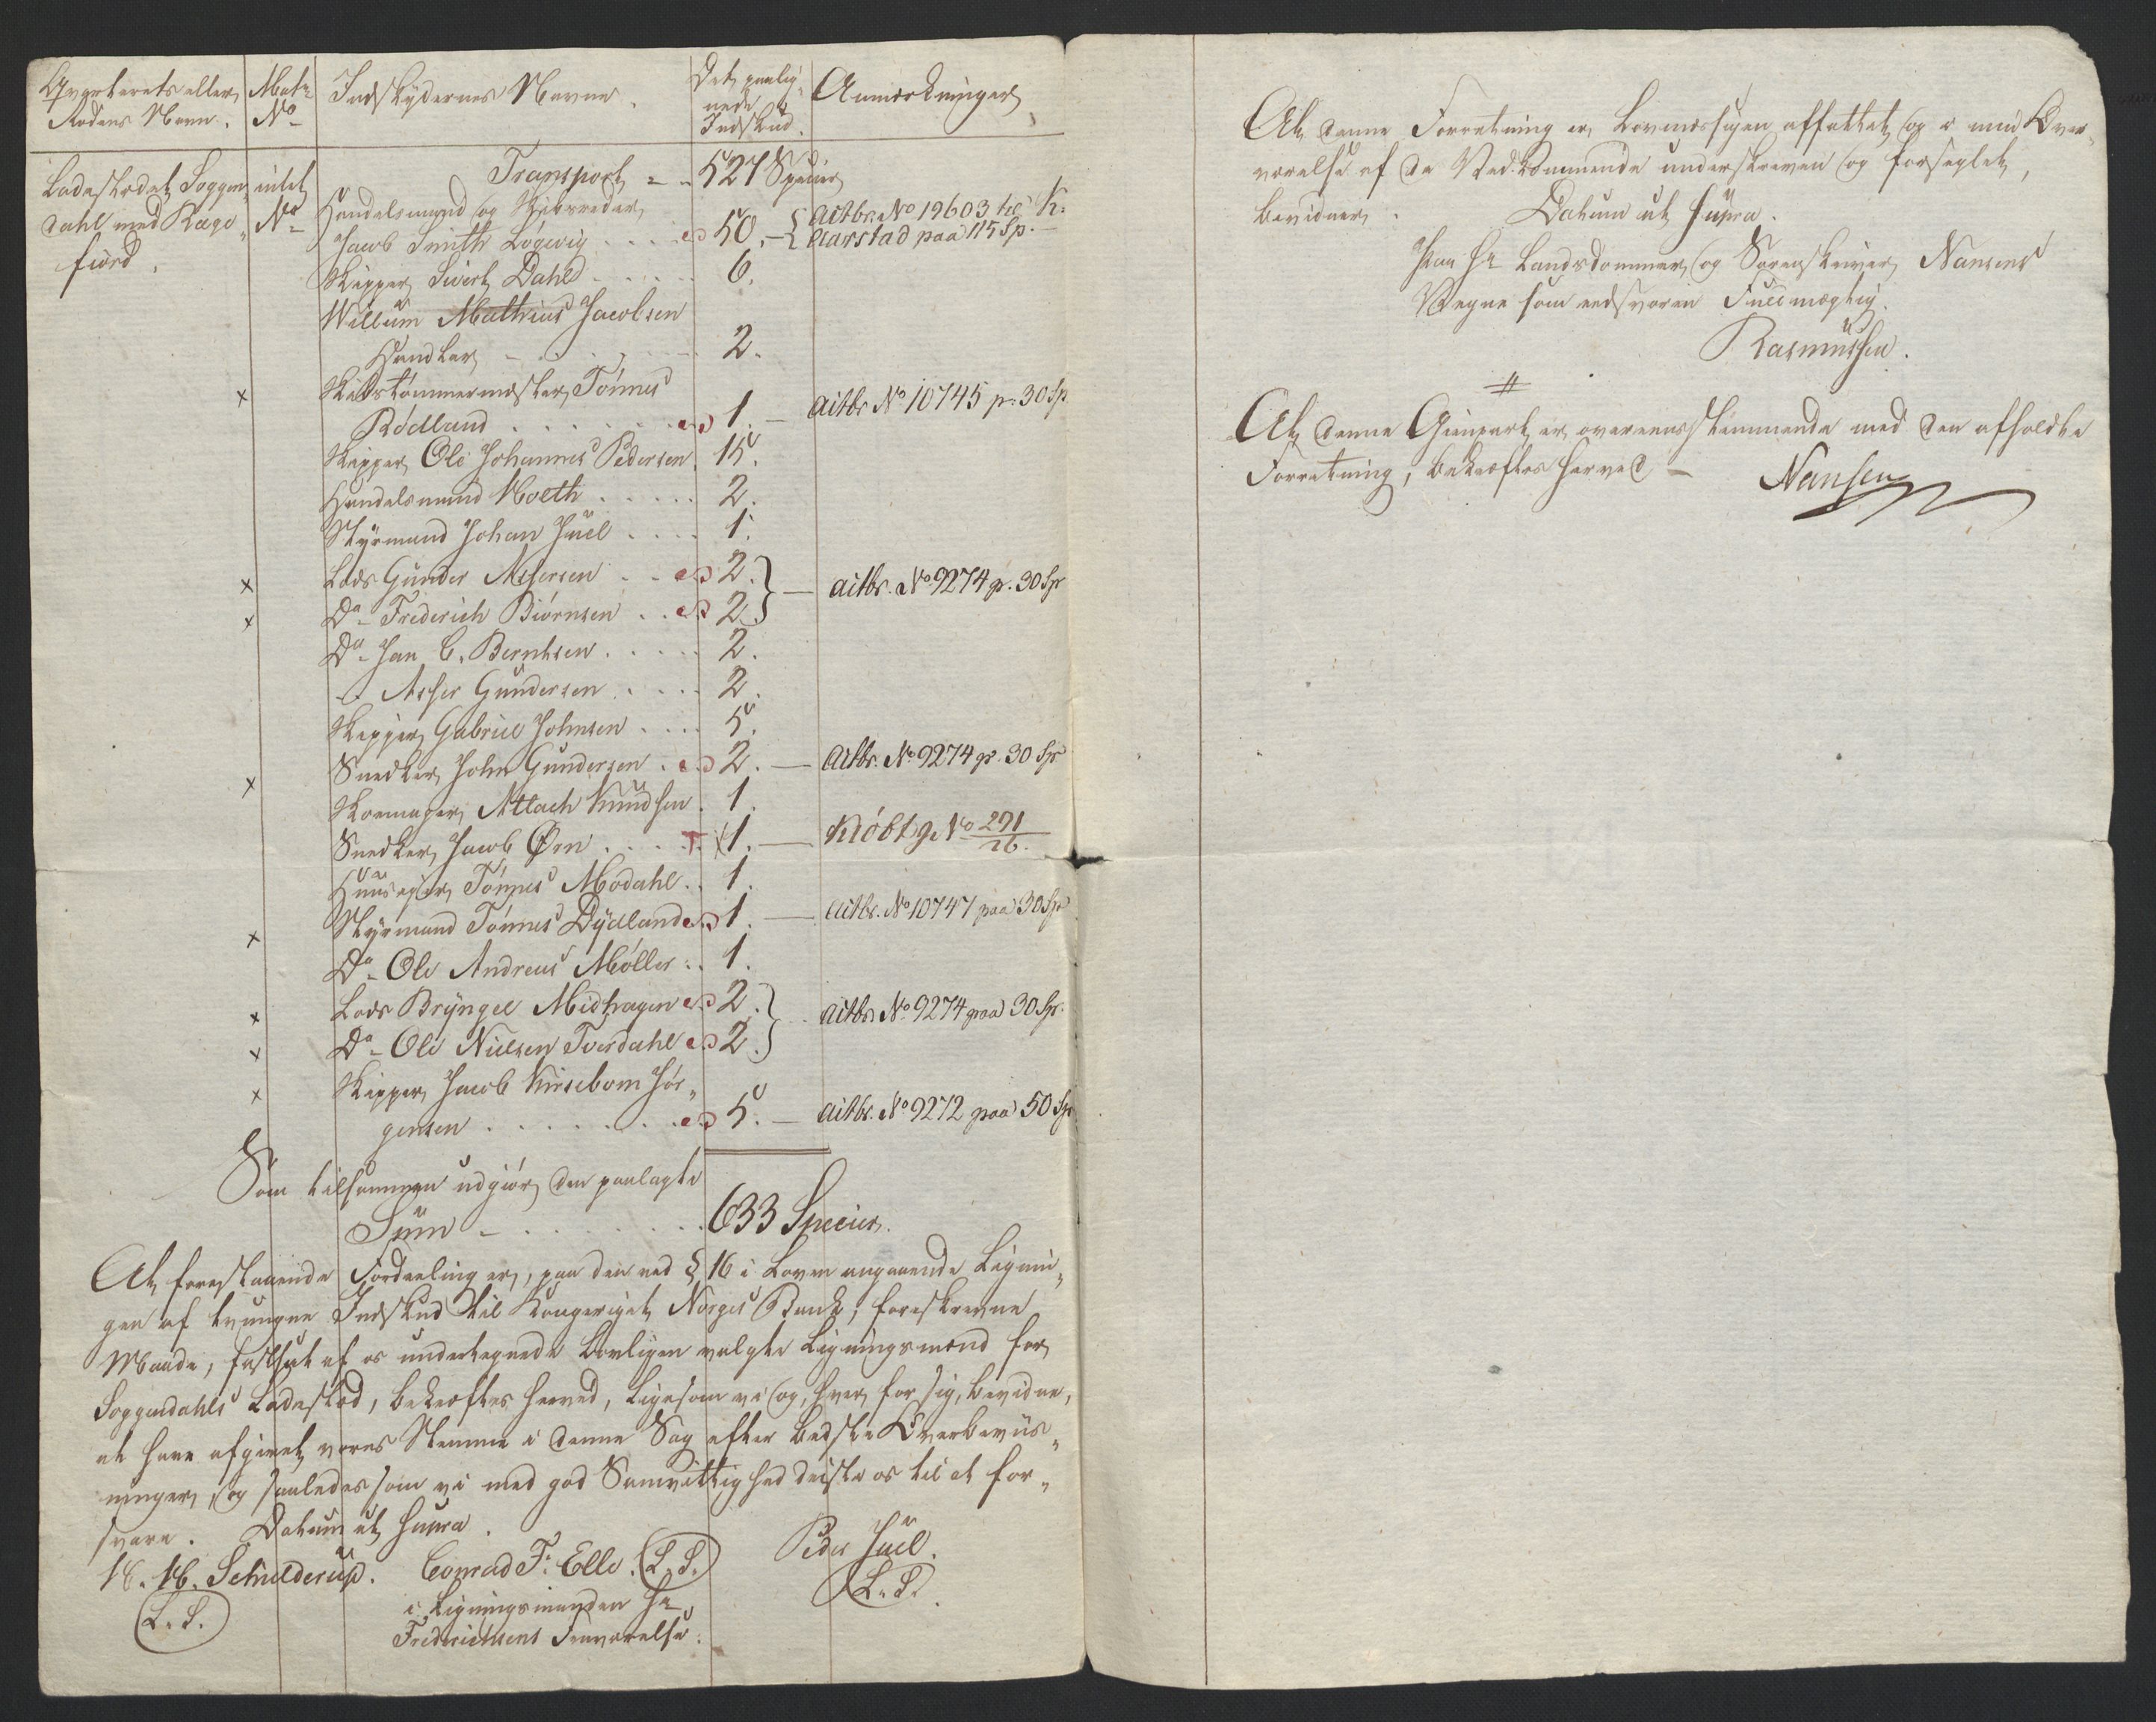 Qvarterets eller
Rodens Navn.
Matr
No
Indskydernes Navne.
Det paalig-
nede
Indskud.
Anmærkninger
Ladestedet Soggen-
dahl med Rege-
fiord.
intet
No
Transport - - 527 Specier
Handelsmand og Skibsreder
Jacob Smith Løgevig . . . 50. - { Actbr. No 19603 til K.
Aarstad paa 115 Sp.
Skipper Sivert Dahl . . . . . 6.
Willum Mathias Jacobsen
Handler - . . . . 2.
x Skibstømmermester Tønnes
Rødland . . . . . . 1. - Actbr No 10745 p. 30 Sp
Skipper Ole Johannes Pedersen. 15.
Handelsmand Moeth . . . . . 2.
Styrmand Johan Juel . . . . 1.
x Lods Gunder Assersen . . 2. } - Actbr. No 9274 p. 30 Sp
x Do Friderich Biørnsen . . 2.
Do Jan C. Berntsen . . . . . 2.
- Asser Gundersen . . . . 2.
Skipper Gabriel Johnsen . . . . 5.
x Snedker John Gundersen . . 2. - Actbr. No 9274 p. 30 Sp
Skomager Atlach Knudsen . 1.
Snedker Jacob Ørn . . . . 1. - Kiøbt p No 271/26.
Huuseier Tønnes Modahl . . 1.
x Styrmand Tønnes Dydland 1. - Actbr. No 10747 paa 30 Sp
Do Ole Andreas Møller . . 1.
x Lods Bryngel Midhagen 2. } - Actbr No 9274 paa 30 Sp.
x Do Ole Nielsen Tverdahl 2.
x Skipper Jacob Kirsebom Jør-
gensen . . . . . . . . 5. - Actbr. No 9272 paa 50 Sp
Som tilsammen udgiør den paalagte
Sum - . . . . . . . 633 Specier.
At forestaaende Fordeeling er, paa den ved § 16 i Loven angaaende Lignin-
gen af tvungne Indskud til Kongeriget Norges Bank, foreskrevne
Maade, fastsat af os undertegnede lovligen valgte Ligningsmænd for
Soggendahls Ladested, bekræftes herved, ligesom vi og, hver for sig, bevidne,
at have afgivet vores Stemme i denne Sag efter bedste Overbeviis-
ninger, og saaledes som vi med god Samvittighed trøste os til at for-
svare. Datum ut supra.
Schulderup. Conrad F. Elle. (L.S.) Peder Juel.
(L.S.) i Ligningsmanden Hr (L.S.)
Friderichsens Fraværelse.
At denne Forretning er lovmæssigen affattet og i min Over-
værelse af de Vedkommende underskreven og forseglet,
bevidner. Datum ut supra.
Paa Hr Landsdommer og Sorenskriver Nansens
Vegne som eedsvoren Fuldmægtig.
Rasmussen.
At denne Gienpart er overeensstemmende med den afholdte
Forretning, bekræftes herved - Nansen